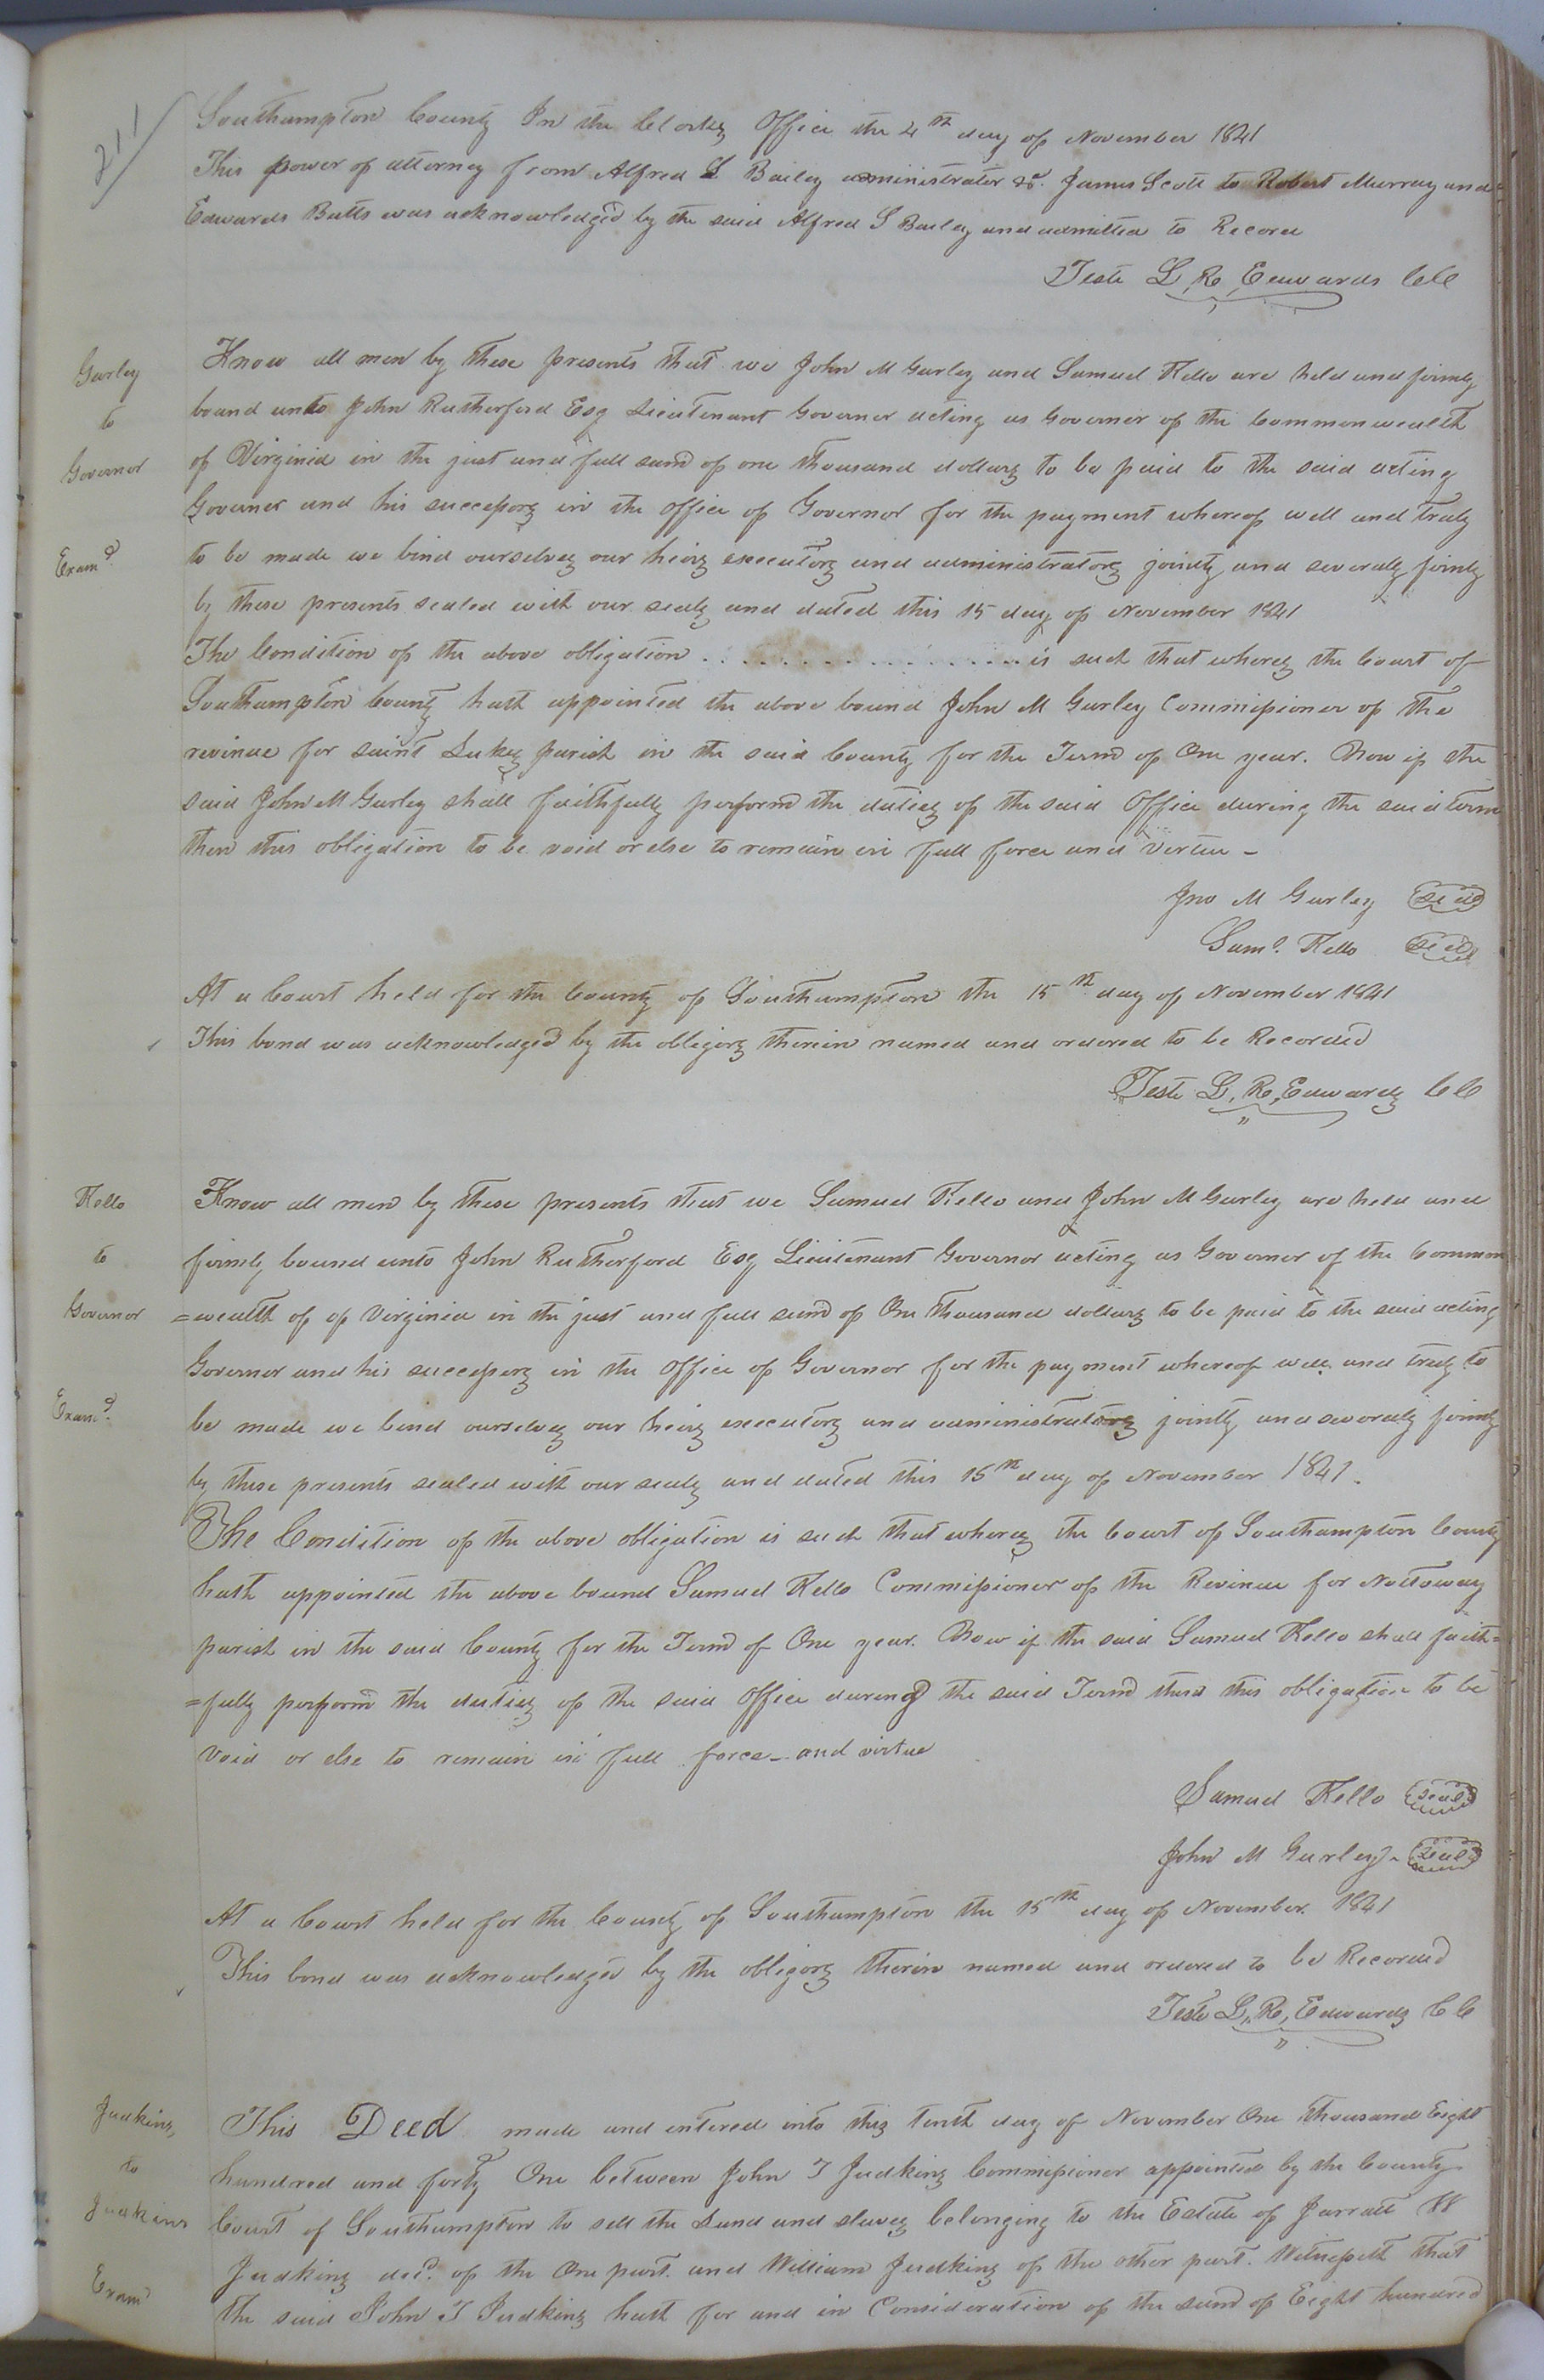 211
Southampton County In the Clerks Office the 4th day of November 1841
This power of attorney from Alfred S Bailey administrator &c. James Scott to Robert Murray and
Edwards Butts was acknowledged by the said Alfred S Bailey and admitted to Record
Teste L, R, Edwards CC
Gurley
to
Governor
Examd.
Know all men by these presents that we John M Gurley and Samuel Kello are held and firmly
bound unto John Rutherford Esq Lieutenant Governor acting as Governor of the Commonwealth
of Virginia in the just and full sum of one thousand dollars to be paid to the said acting
Governor and his successors in the office of Governor for the payment whereof well and truly
to be made we bind ourselves our heirs executors and administrators jointly and severally firmly
by these presents sealed with our seals and dated this 15 day of November 1841
The Condition of the above obligation . . . . . . . . . . . . . . . . is such that whereas the Court of
Southampton County hath appointed the above bound John M Gurley Commissioner of the
revinue for saint Lukes parish in the said County for the Term of One year. Now if the
said John M Gurley shall faithfully perform the duties of the said Office during the said term
then this obligation to be void or else to remain in full force and Virtue -
Jno M Gurley seal
Saml. Kello seal
At a Court held for the County of Southampton the 15th day of November 1841
This bond was acknowledged by the obligors therein named and ordered to be Recorded
Teste L, R, Edwards CC
Kello
to
Governor
Examd.
Know all men by these presents that we Samuel Kello and John M Gurley are held and
firmly bound unto John Rutherford Esq Lieutenant Governor acting as Governor of the Common
=wealth of of Virginia in the just and full sum of One thousand dollars to be paid to the said acting
Governor and his successors in the office of Governor for the payment whereof well and truly to
be made we bind ourselves our heirs executors and administrators jointly and severally firmly
by these presents sealed with our seals and dated this 15th day of November 1841.
The Condition of the above obligation is such that whereas the Court of Southampton County
hath appointed the above bound Samuel Kello Commissioner of the Revinue for Nottoway
parish in the said County for the Term of One year. Now if the said Samuel Kello shall faith=
=fully perform the duties of the said office during the said Term then this obligation to be
void or else to remain in full force - and virtue
Samuel Kello seal
John M Gurley - seal
At a Court held for the County of Southampton the 15th day of November. 1841
This bond was acknowledged by the obligors therein named and ordered to be Recorded
Teste L, R, Edwards CC
Judkins,
to
Judkins
Examd
This Deed made and entered into this tenth day of November One thousand Eight
hundred and forty One between John T Judkins Commissioner appointed by the County
Court of Southampton to sell the Land and slaves belonging to the Estate of Jarratt W
Judkins decd. of the One part. and William Judkins of the other part. Witnesseth that
the said John T Judkins hath for and in Consideration of the sum of Eight hundred